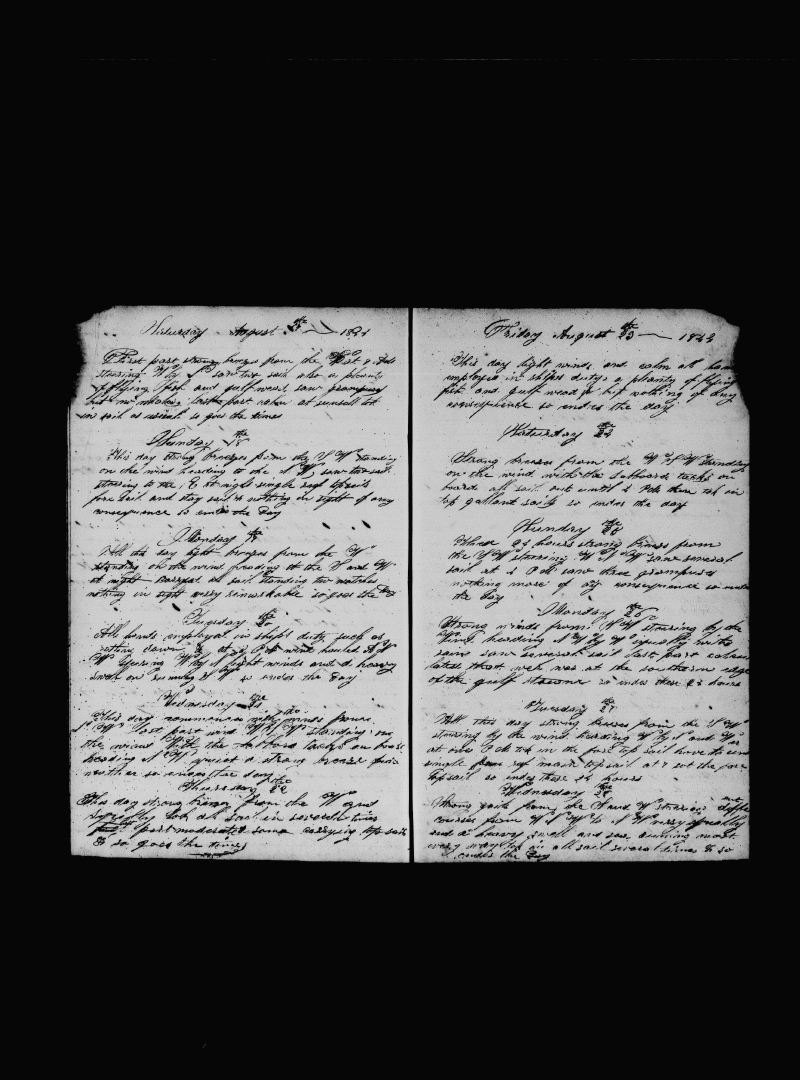 Saturday August 17th — 1844
First part strong breezes from the West & Sth
steering W by S saw two sail also a plenty
of flying fish and gulf weed, saw grampuses
but no whales last part calm at sunset let
in sail as usual so goes the times
Sunday 18th
This day strong breezes from the S W standing
on the wind heading to the N W saw two sail
steering to the E to night single reef topsails
fore sail and stay sail nothing in sight of any
consequence so ends the Day
Monday 19th
All this day light breezes from the W
standing on the wind heading at the S and W
at night sail standing two watches
nothing in sight very remarkable so goes the day
Tuesday 20th
All hands employed in ship's duty such as
rattling down & at 2 P M wind hauled N W
W Steering W by S light winds and a heavy
swell on N W so ends the Day
Wednesday 21st
This day commences with winds from
S W last part wind W S W standing on
the wind with the larboard tacks on board
heading N W quiet a strong breeze fair
weather so ends the day
Thursday 22nd
This day strong breeze from the W and
squally took in sail in several times
last part moderated some carrying top sails
& so goes the times
Friday August 23th — 1844
This day light winds and calm all hands
employed in ships duty a plenty of flying
fish and gulf weed but nothing of any
consequence so ends the day
Saturday 24
Strong breeze from the W S W standing
on the wind with the larboard tacks on
board all sail out until 5 P M then took in
top gallant sails so ends the day
Sunday 25
These 24 hours strong breezes from
the S W steering W N W saw several
sail at 5 P M saw three grampuses
nothing more of any consequence so ends
the day
Monday 26
Strong winds from S W steering by the
wind heading N W by W squally with
rain saw several sail last part calm
latter that we was at the southern edge
of the gulf stream so ends these 24 hours
Tuesday 27
All this day strong breezes from the S W
steering by the wind heading W by N and W
at one P M took in the fore top sail have to under
single reef main topsail at 7 set the fore
topsail so ends these 24 hours
Wednesday 28
Strong gale from the S and W steering different
courses from W S W to N W very squally
and a heavy swell and sea, running most
every way took in all sail several times & so
ends the Day